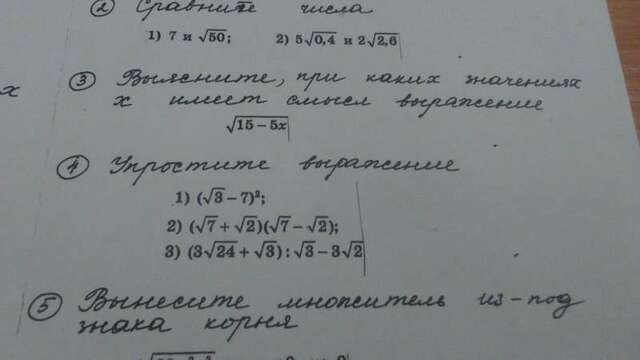 ② Сравните числа
1) 7 и √50; 2) 5√0,4 и 2√2,6
③ Выясните, при каких значениях
х
х имеет смысл выражение
√15 – 5x
④ Упростите выражение
1) (√3 – 7)²;
2) (√7 + √2)(√7 – √2);
3) (3√24 + √3) : √3 – 3√2
⑤ Вынесите множитель из-под
знака корня